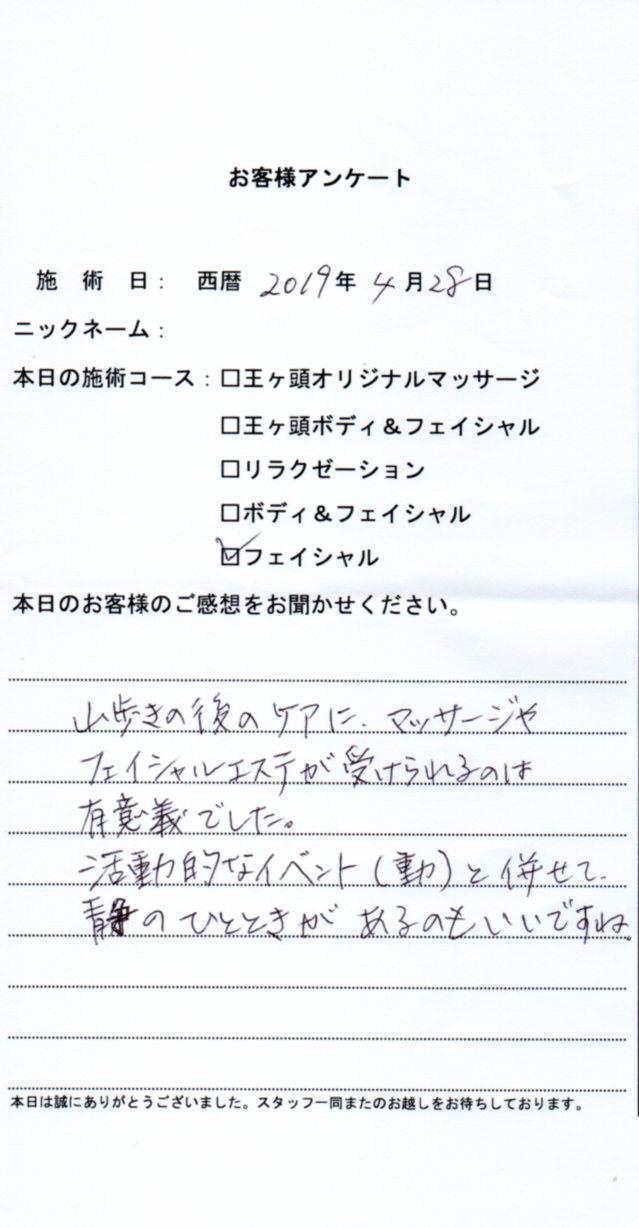 お客様アンケート
施 術 日： 西暦 2019年 4月28日
ニックネーム：
本日の施術コース：□王ヶ頭オリジナルマッサージ
□王ヶ頭ボディ＆フェイシャル
□リラクゼーション
□ボディ＆フェイシャル
☑フェイシャル
本日のお客様のご感想をお聞かせください。
山歩きの後のケアに、マッサージや
フェイシャルエステが受けられるのは
有意義でした。
活動的なイベント(動)と併せて、
静のひとときがあるのもいいですね。
本日は誠にありがとうございました。スタッフ一同またのお越しをお待ちしております。